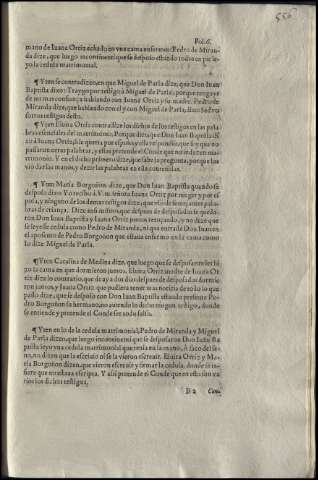 556
mano de Iuana Ortiz echado en vna cama enfermo: Pedro de Miran-
da dize, que luego incontinenti que se desposò estãdo todos en pie le-
yò la cedula matrimonial.
¶ Yten se contradizen, en que Miguel de Parla dize, que Don Iuan
Baptista dixo: Traygo por testigo à Miguel de Parla, porque tengo ya
de mi mas confiança hablando con Iuana Ortiz y su madre. Pedro de
Miranda dize, que hablò con el y con Miguel de Parla, Dios
Yten Eluira Ortiz contradize los dichos de los testigos en las pala-
bras essenciales del matrimonio. Porque dize que Don Iuan Baptista
à Iuana Ortiz si le queria por esposo, y ella respondio que si y que no
passaron otras palabras, y assi pretende el Conde que no huuo matri-
monio. Y en el dicho primero dize, que sabe la pregunta, porque los
vio dar las manos, y dezir las palabras en ella contenidas.
¶ Yten Maria Borgoñon dize, que Don Iuan Baptista quando se
desposò dixo Yo recibo à V.m. señora Iuana Ortiz por muger y por es-
posa, y ninguno de los demas testigos dize, que
de criança. Dize assi mismo que despues de desposados se queda-
ron Don Iuan Baptista y Iuana Ortiz juntos, y no dize que
se leyesse cedula como Pedro de Miranda, ni que entrò Don Iuan en
el aposento de Pedro Borgoñon que estaua enfermo en la cama como
lo dize Miguel de Parla.
¶ Yten Catalina de Medina dize, que luego que se desposaron les hi-
zo la cama en que dormieron juntos. Eluira Ortiz madre de Iuana Or-
tiz dize lo contrario, que de ay à dos dias despues de desposados dormie-
ron juntos, y Iuana Ortiz que pudiera tener mas noticia de todo lo que
passò dize, que se desposò con Don Iuan Baptista estando presente Pedro
Borgoñon su hermano, no auiendo lo dicho ningun testigo, donde
se entiende y pretende el Conde ser todo falso.
¶ Yten en lo de la cedula matrimonial, Pedro de Miranda y Miguel
de Parla dizen, que luego incontinenti que se desposaron Don Iuan Ba-
ptista leyò vna cedula matrimonial que traìa en la mano, ò sacò del se-
no, no dizen que la escriuio ni se la vieron escreuir. Eluira Ortiz y Ma-
ria Borgoñon dizen, que vieron escreuir y firmar la cedula, donde se in-
fiere que no estaua escripta. Y assi pretende el Conde que en esto son va-
rios los dichos testigos.
D 2 Con-